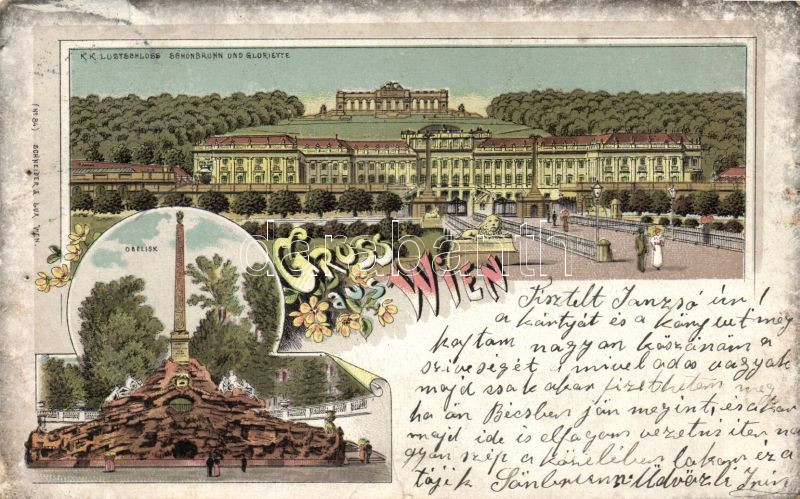 K.K. LUSTSCHLOSS SCHÖNBRUNN UND GLORIETTE
(No 84) SCHNEIDER & LUX, WIEN
OBELISK
GRUSS
AUS
WIEN
darabanth.com
Tisztelt Janzsó úr!
a kártyát és a könyvet meg
kaptam nagyon köszönöm a
szivességét, mivel adós vagyok
majd csak akor fizethetem meg
ha ön Bécsben jön megint, és akor
majd ide is elfogom vezetni iten na
gyon szép a közelében lakom ez a
tájék Sönbrunn Üdvözli Irin